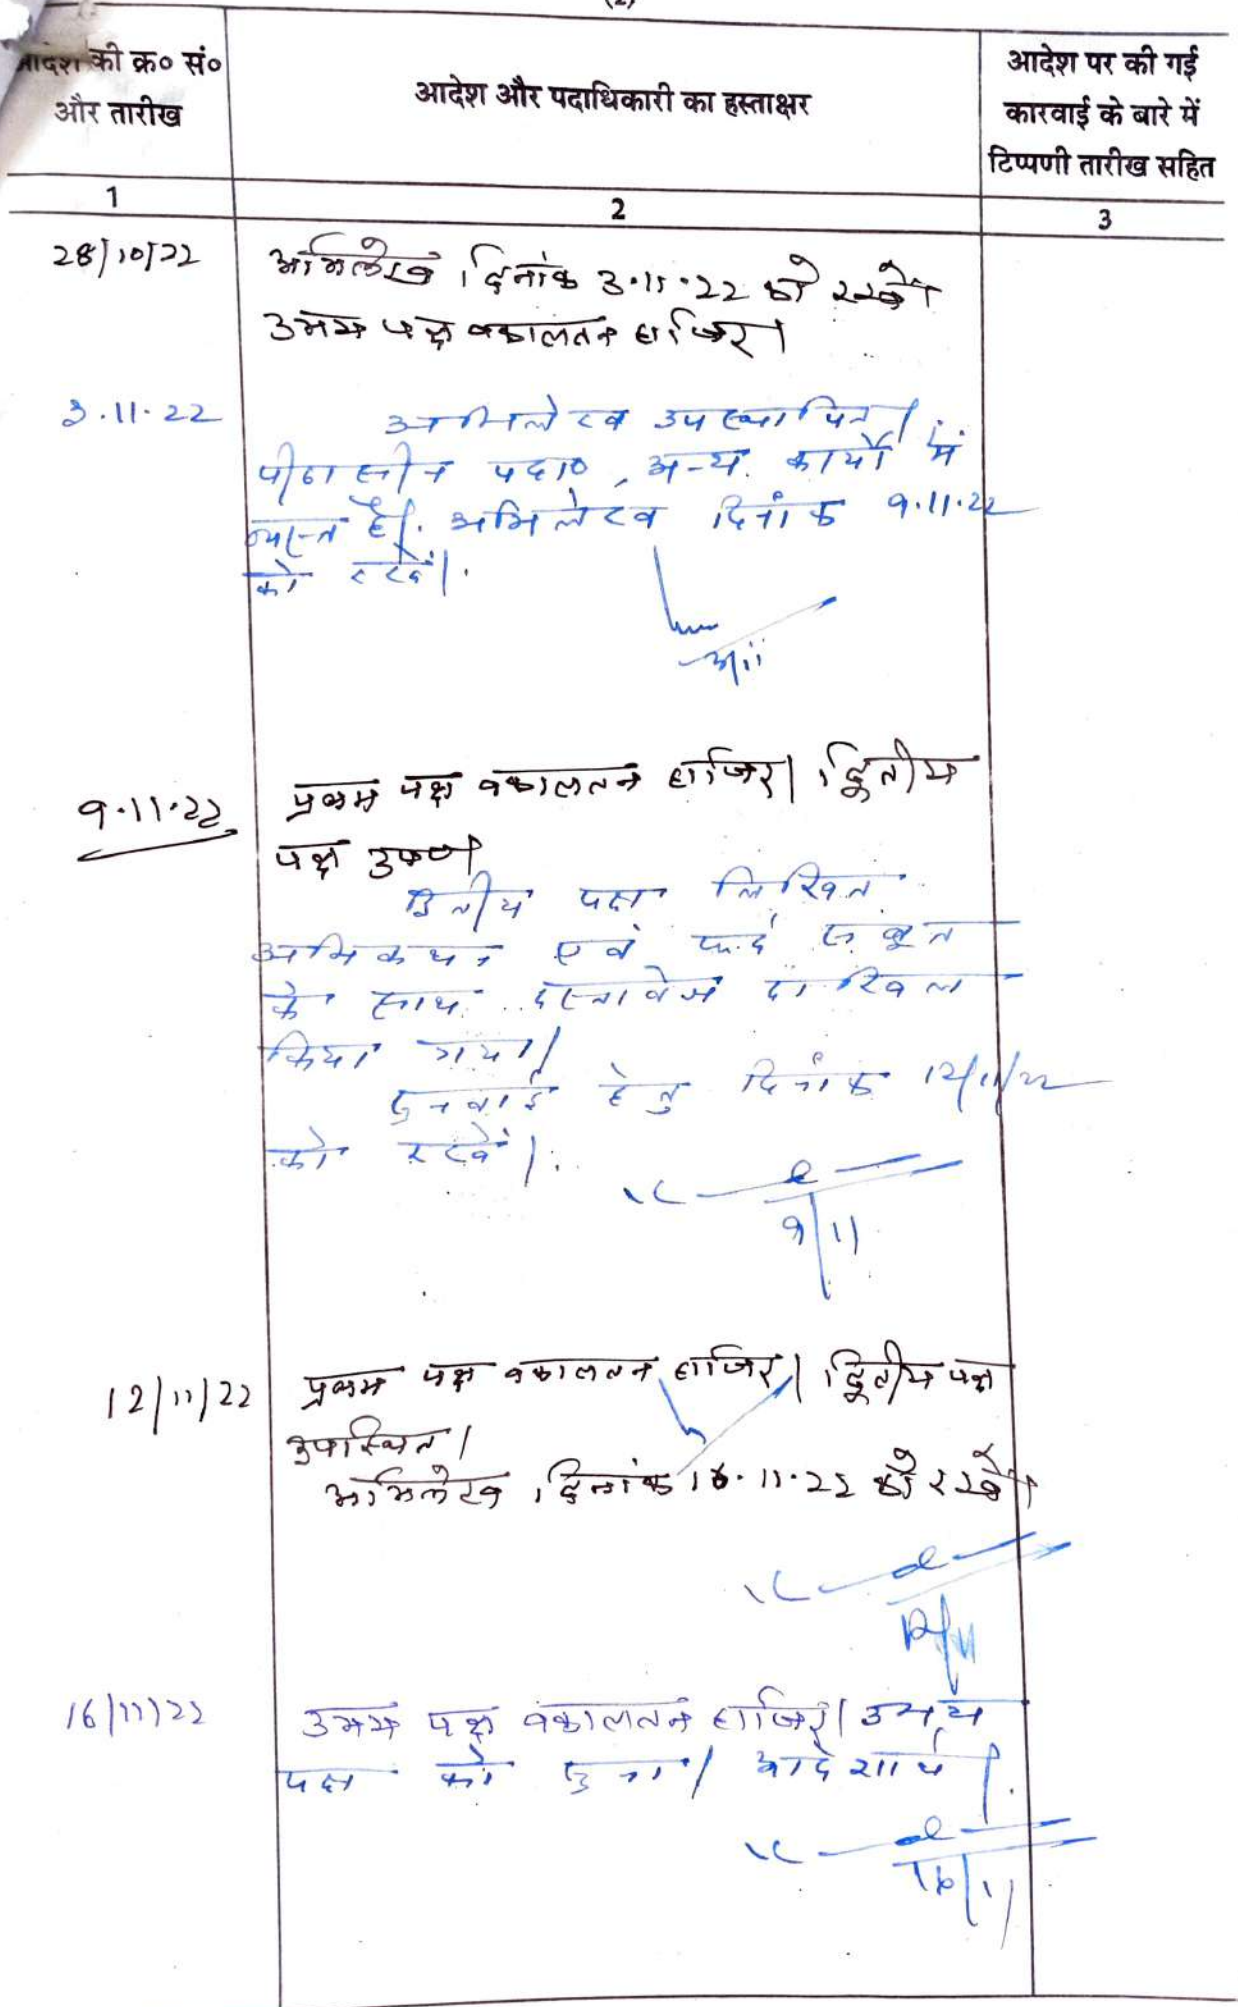 (2)
आदेश की क्र० सं०
और तारीख
आदेश और पदाधिकारी का हस्ताक्षर
आदेश पर की गई
कारवाई के बारे में
टिप्पणी तारीख सहित
1
2
3
28/10/22
अभिलेख दिनांक 3.11.22 को रखें।
उभय पक्ष वकालतन हाजिर।
3.11.22
अभिलेख उपस्थापित।
पीठासीन पदा०, अन्य कार्यों में
व्यस्त हैं। अभिलेख दिनांक 9.11.22
को रखें।
3/11
9.11.22
प्रथम पक्ष वकालतन हाजिर। द्वितीय
पक्ष उप०।
द्वितीय पक्ष लिखित
अभिकथन एवं फर्द सबूत
के साथ दस्तावेज दाखिल
किया गया।
सुनवाई हेतु दिनांक 12/11/22
को रखें।
9/11
12/11/22
प्रथम पक्ष वकालतन हाजिर। द्वितीय पक्ष
उपस्थित।
अभिलेख दिनांक 16.11.22 को रखें।
12/11
16/11/22
उभय पक्ष वकालतन हाजिर। उभय
पक्ष को सुना। आदेशार्थ।
16/11